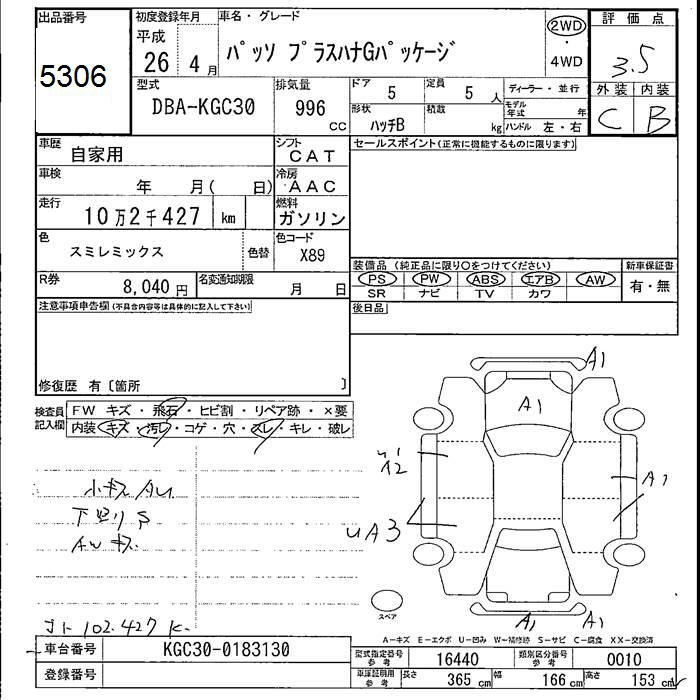 出品番号 初度登録年月 車名・グレード 評価点
5306 平成 26 4月 パッソ プラスハナGパッケージ 2WD・4WD 3.5
型式 排気量 ドア 定員 ディーラー・並行 外装 内装
DBA-KGC30 996 CC 5 5 人 C B
形状 積載 モデル年式 年
ハッチB kg ハンドル 左・右
車歴 自家用 シフト CAT セールスポイント(正常に機能するものに限ります)
車検 年 月( 日) 冷房 AAC
走行 10万2千427 km 燃料 ガソリン
色 スミレミックス 色替 色コード X89
装備品(純正品に限り○をつけてください) 新車保証書
R券 8,040円 名変通知期限 月 日 PS PW ABS エアB AW 有・無
SR ナビ TV カワ
注意事項申告欄(不具合内容等は具体的に記入して下さい) 後日品
修復歴 有〔箇所 〕
検査員記入欄 FW キズ・飛石・ヒビ割・リペア跡・×要
内装 キズ・汚レ・コゲ・穴・スレ・キレ・破レ
A1
A1
A1
UA3
小キズ AU
下廻りS
AWキズ
102.427K
A1 A1
スペア
A-キズ E-エクボ U-凹み W-補修跡 S-サビ C-腐食 XX-交換済
車台番号 KGC30-0183130 型式指定番号 参考 16440 類別区分番号 参考 0010
登録番号 車庫証明用 参考 長さ 365 cm 幅 166 cm 高さ 153 cm